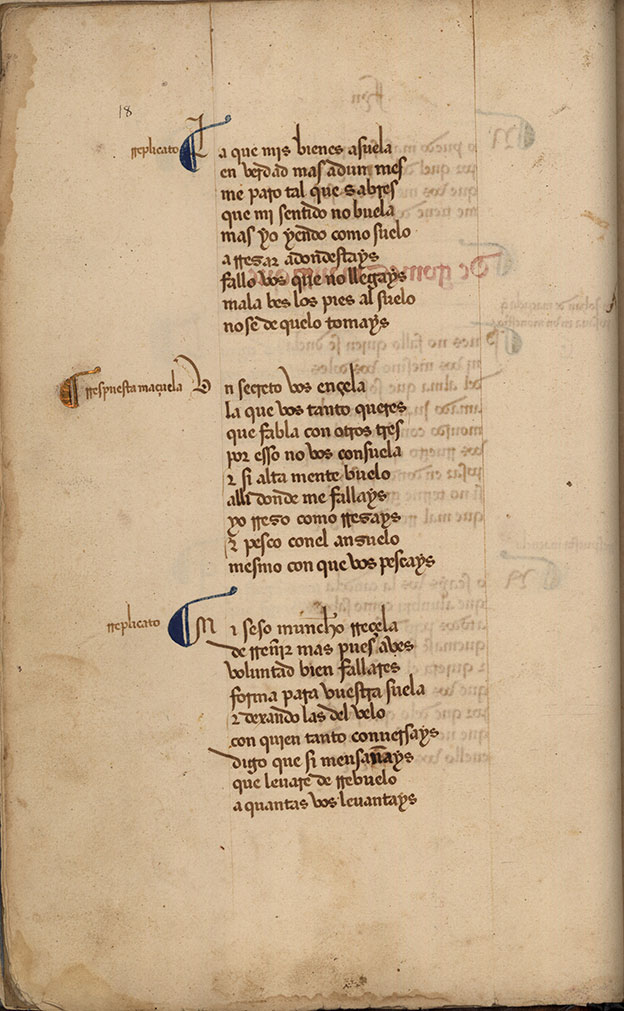 18
rreplicato
La que mis bienes asuela
en verdad mas adun mes
me paro tal que sabres
que mi sentido no buela
mas yo yendo como suelo
a rregar adondestays
fallo vos que no llegays
mala bes los pies al suelo
no se de quelo tomays
rrespuesta maçuela
Un secreto vos ençela
la que vos tanto queres
que fabla con otros tres
por esso no vos consuela
z si alta mente buelo
alli donde me fallays
yo rrego como rregays
z pesco conel anguelo
mesmo con que vos pescays
rreplicato
Mi seso muncho rreçela
de rreñir mas pues aves
voluntad bien fallares
forma para vuestra suela
z dexando las del velo
con quien tanto conversays
digo que si mensañays
que levare de rrebuelo
a quantas vos levantays